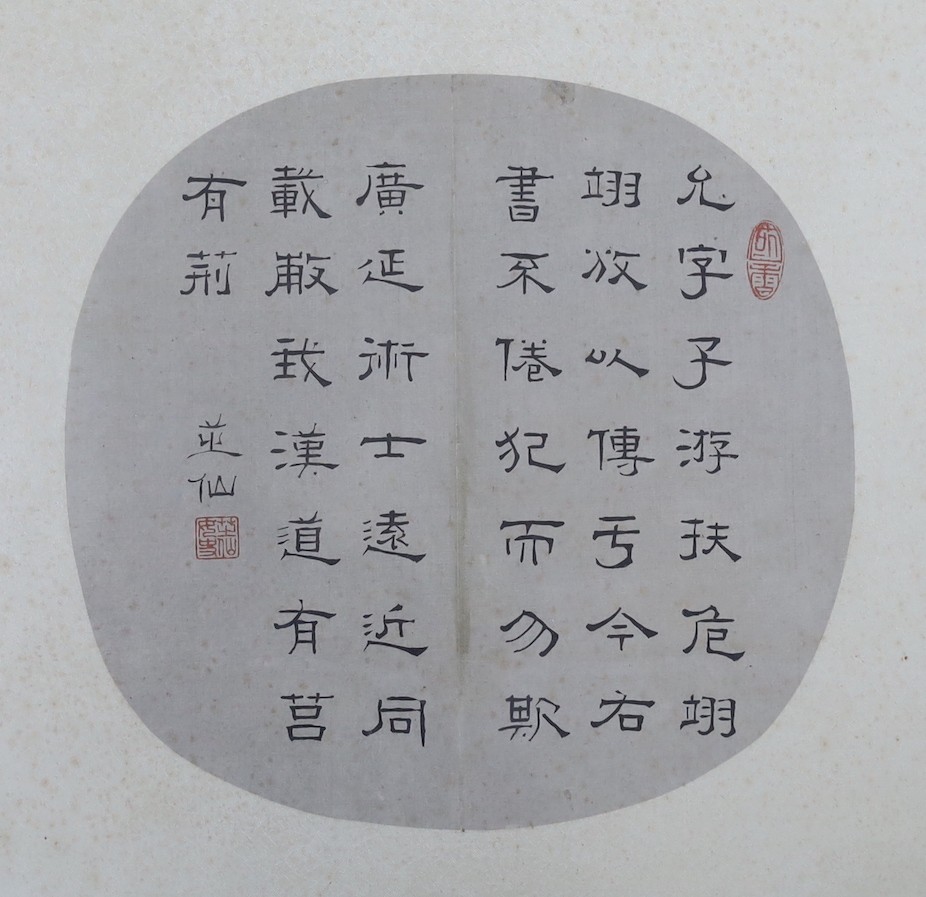 允字子游扶危翊
翊放以傳亏今右
書不倦犯而勿欺
廣延術士遠近同
載敝我漢道有莒
有荊
仙